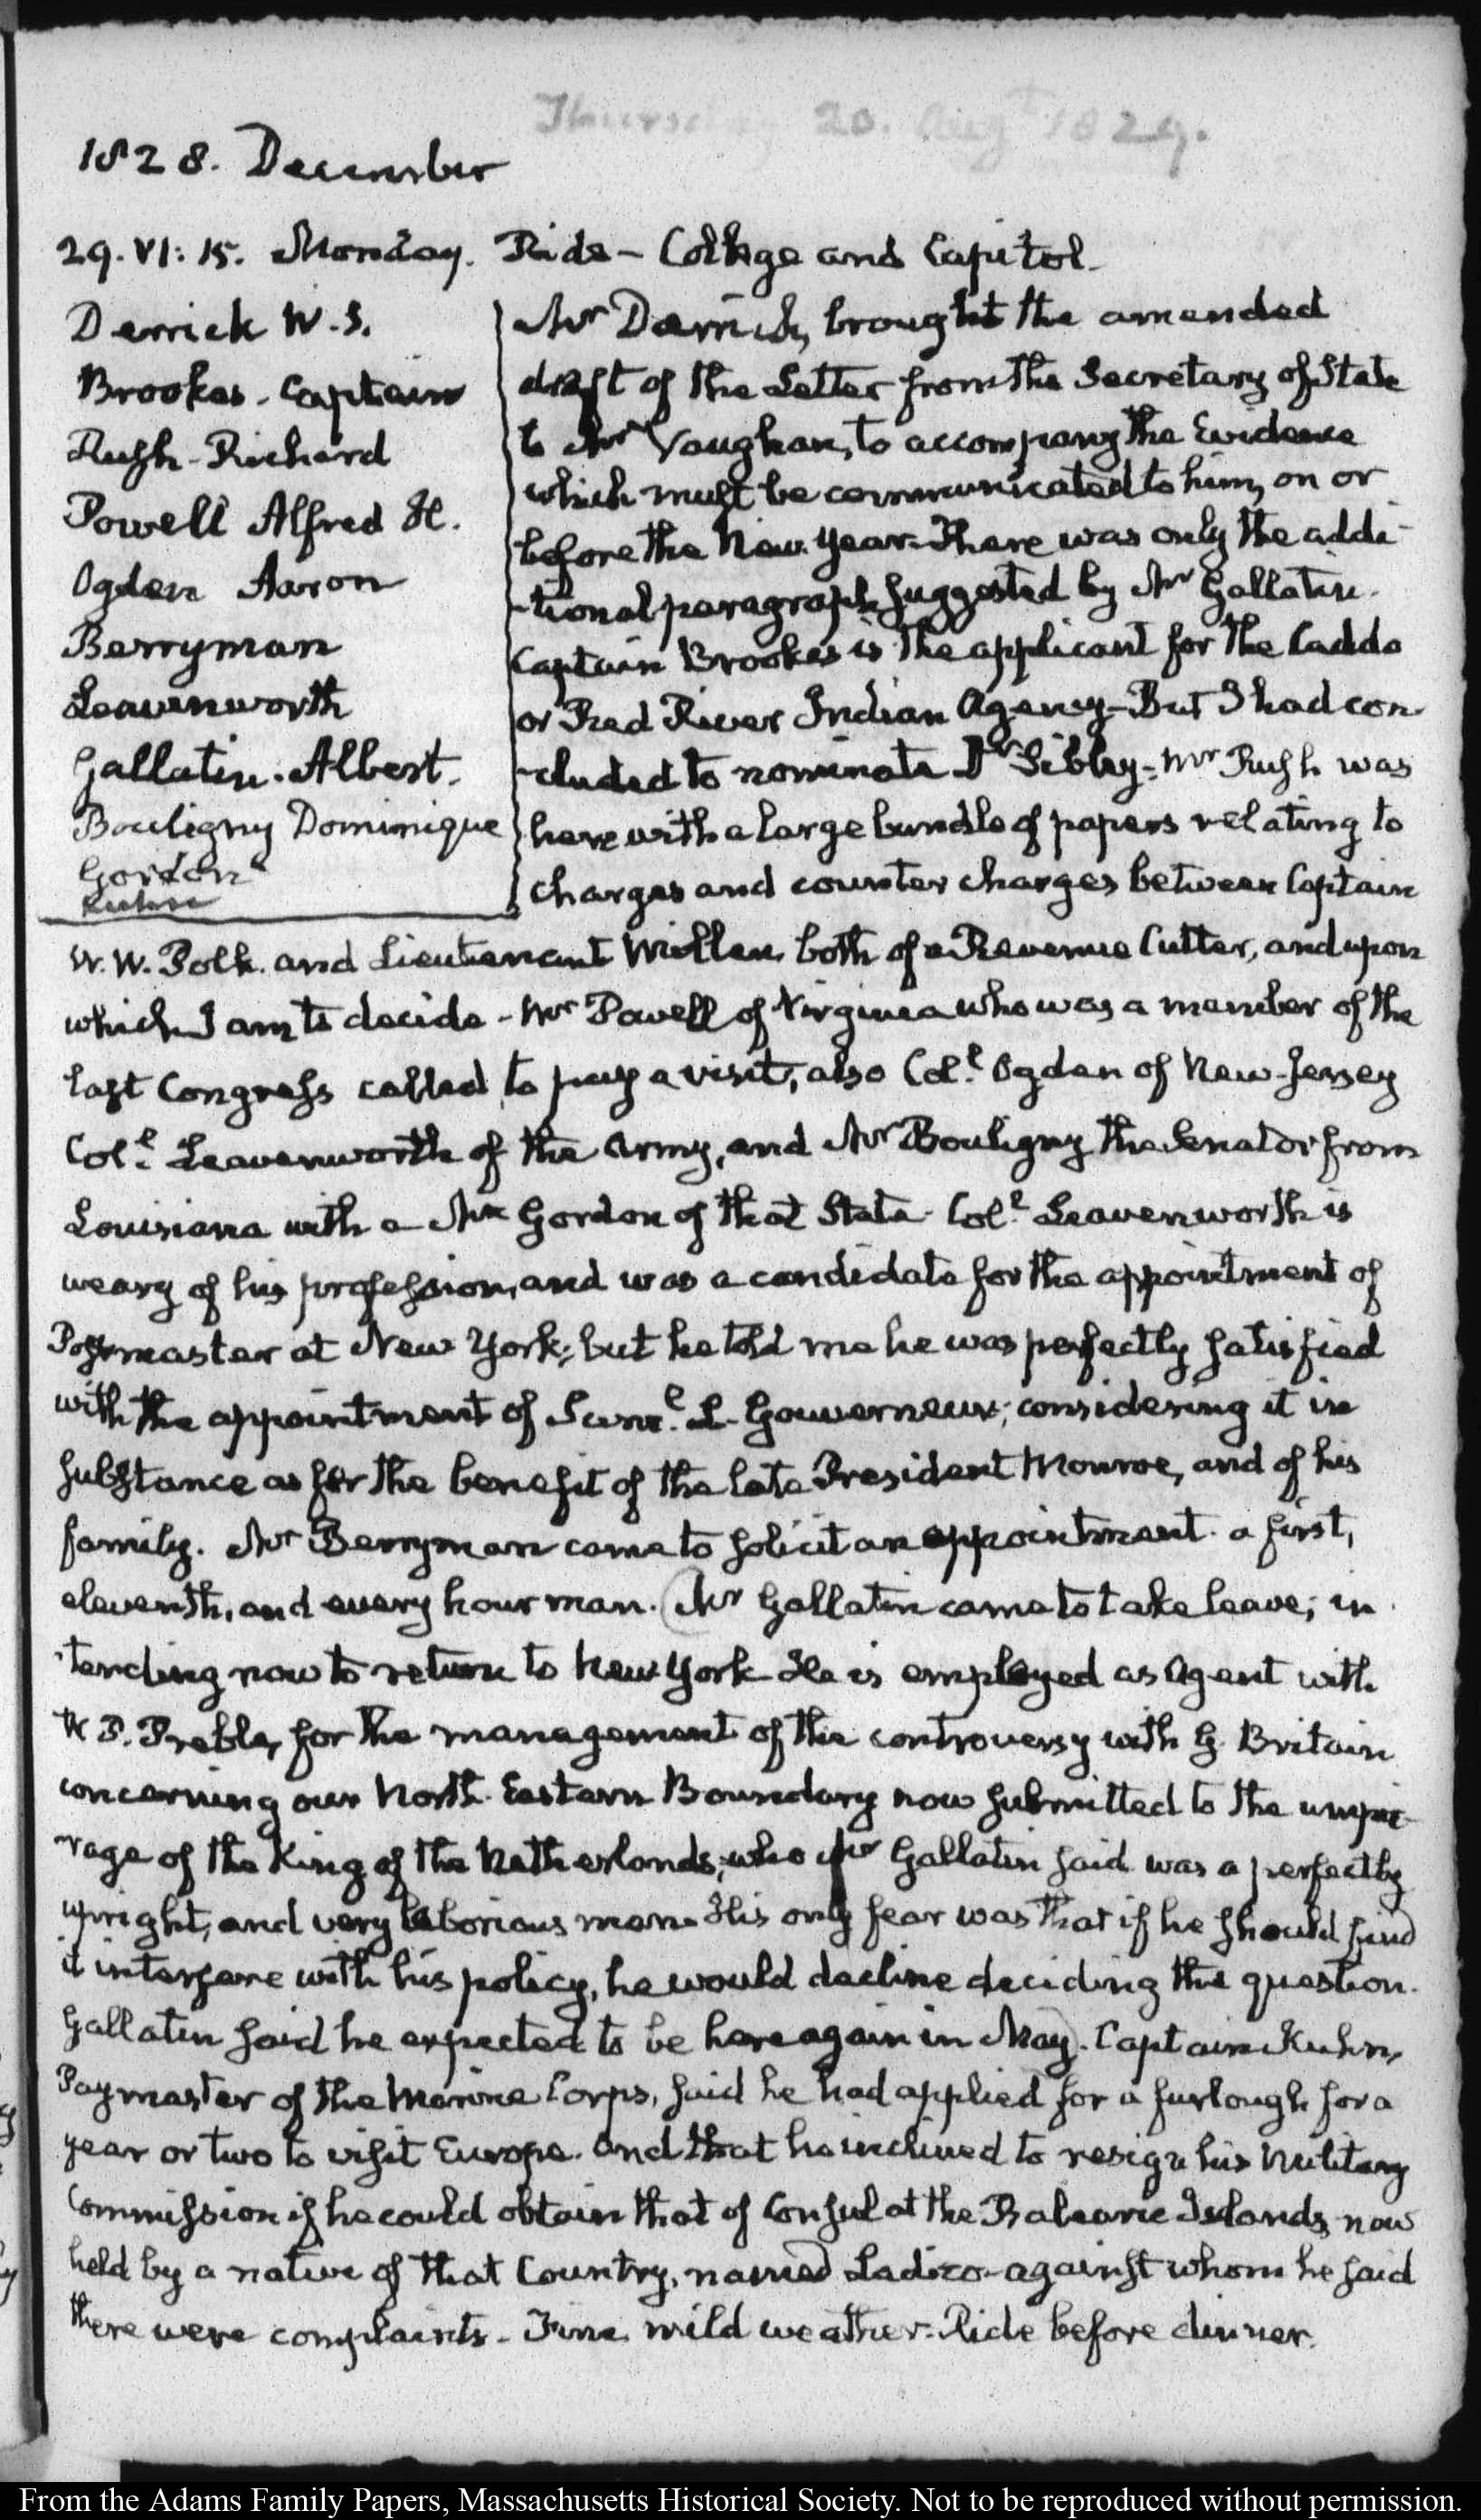 Thursday 20. Augt 1829.
1828. December
29. VI: 15. Monday. Ride – College and Capitol.
Derrick W. S.
Brookes. Captain
Rush – Richard
Powell Alfred H.
Ogden Aaron
Berryman
Leavenworth
Gallatin. Albert.
Bouligny Dominique
Gordon
Kuhn
Mr Derrick, brought the amended
draft of the Letter from the Secretary of State
to Mr Vaughan, to accompany the Evidence
which must be communicated to him, on or
before the New Year. There was only the addi-
-tional paragraph suggested by Mr Gallatin.
Captain Brookes is the applicant for the Caddo
or Red River Indian Agency – But I had con-
-cluded to nominate Dr Sibley – Mr Rush was
here with a large bundle of papers relating to
charges and counter charges between Captain
W. W. Polk. and Lieutenant both of a Revenue Cutter, and upon
which I am to decide – Mr Powell of Virginia who was a member of the
last Congress called to pay a visit, also Coll. Ogden of New-Jersey
Coll. Leavenworth of the Army, and Mr Bouligny the Senator from
Louisiana with a Mr Gordon of that State. Coll. Leavenworth is
weary of his profession, and was a candidate for the appointment of
Postmaster at New York; but he told me he was perfectly satisfied
with the appointment of Saml. L. Gouverneur; considering it in
substance as for the benefit of the late President Monroe, and of his
family. Mr Berryman came to solicit an appointment. a first,
eleventh, and every hour man. Mr Gallatin came to take leave; in
-tending now to return to New York – He is employed as Agent with
W. P. Preble, for the management of the controversy with G. Britain
concerning our North Eastern Boundary now submitted to the umpi-
-rage of the King of the Netherlands; who Mr Gallatin said was a perfectly
upright, and very laborious man. His only fear was that if he should find
it interfere with his policy, he would decline deciding the question.
Gallatin said he expected to be here again in May. Captain Kuhn,
Paymaster of the Marine Corps, said he had applied for a furlough for a
year or two to visit Europe. and that he inclined to resign his Military
Commission if he could obtain that of Consul at the Balearic Islands, now
held by a native of that Country, named Ladico – against whom he said
there were complaints – Fine mild weather. Ride before dinner.
From the Adams Family Papers, Massachusetts Historical Society. Not to be reproduced without permission.